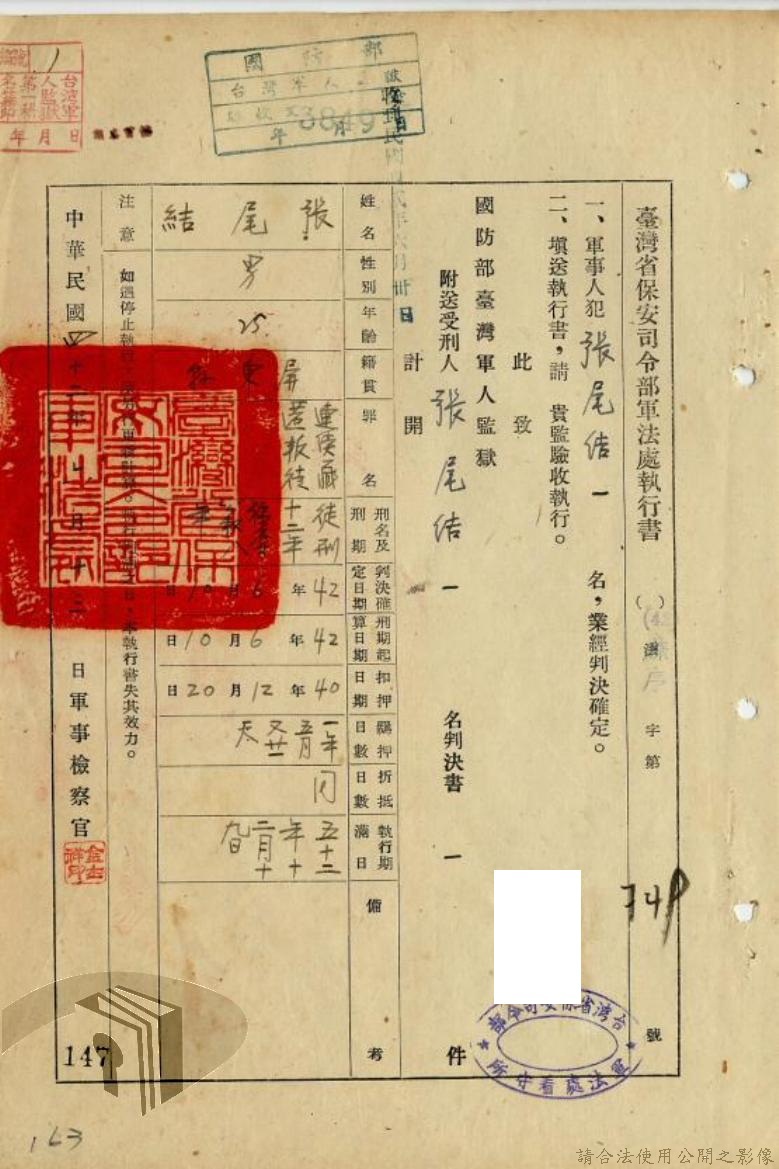 國防部
台灣軍人監獄
3849
年月日
台灣軍人監獄
年月日
臺灣省保安司令部軍法處執行書
字第
749
號
一、軍事人犯張尾結一名，業經判決確定。
二、填送執行書，請 貴監驗收執行。
此致
國防部臺灣軍人監獄
附送受刑人張尾結一名判決書一件
計開
姓名
張尾結
性別
男
年齡
25
籍貫
屏東
罪名
連續藏匿叛徒
刑名及刑期
徒刑十二年
判決確定日期
42年6月10日
刑期起算日期
42年6月10日
扣押日期
40年12月20日
羈押日數
一年五月又廿一天
折抵日數
同
執行期滿日
五十二年十二月十九日
備考
注意
如遇停止執行
本執行書失其效力。
中華民國四十二年
月十三日軍事檢察官
台灣省保安司令部
軍法處看守所
147
163
請合法使用公開之影像